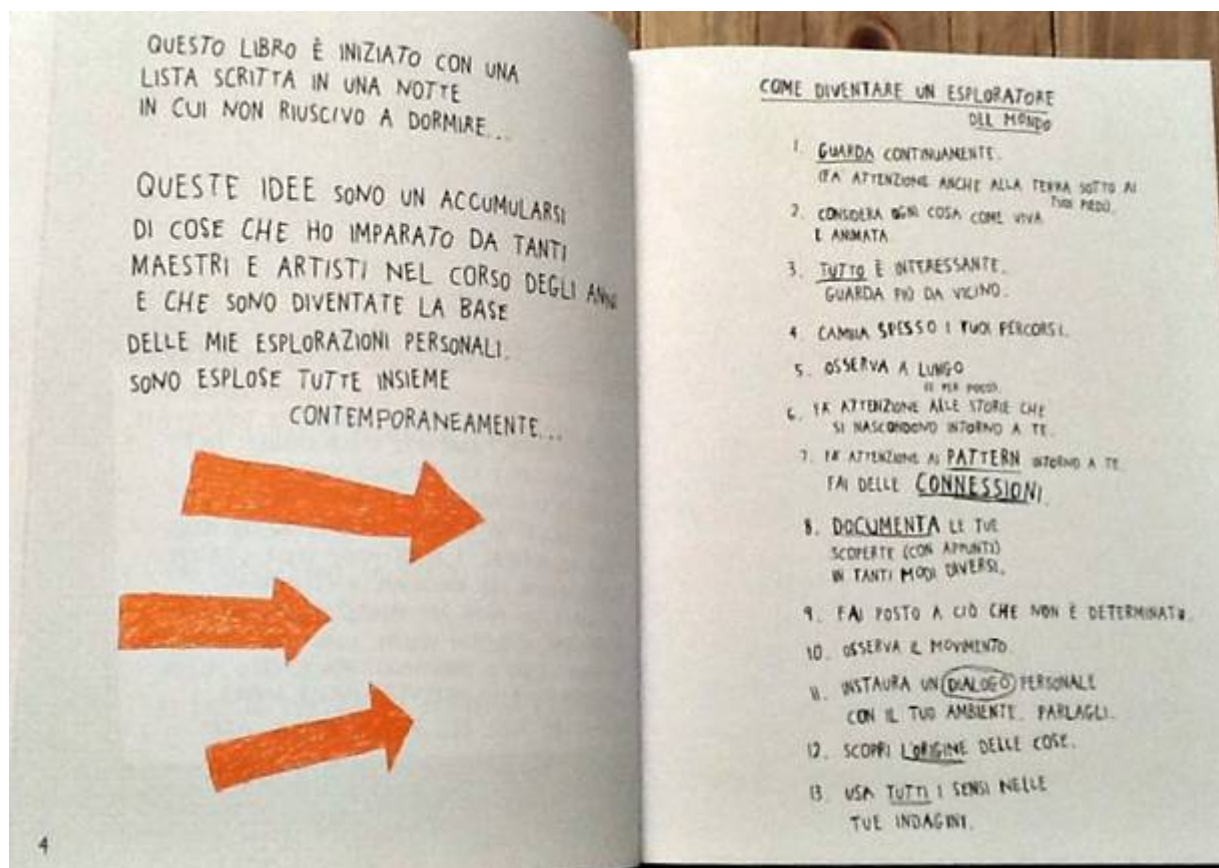 QUESTO LIBRO È INIZIATO CON UNA
LISTA SCRITTA IN UNA NOTTE
IN CUI NON RIUSCIVO A DORMIRE...
QUESTE IDEE SONO UN ACCUMULARSI
DI COSE CHE HO IMPARATO DA TANTI
MAESTRI E ARTISTI NEL CORSO DEGLI ANNI
E CHE SONO DIVENTATE LA BASE
DELLE MIE ESPLORAZIONI PERSONALI.
SONO ESPLOSE TUTTE INSIEME
CONTEMPORANEAMENTE...
4
COME DIVENTARE UN ESPLORATORE
DEL MONDO
1. GUARDA CONTINUAMENTE.
(FA ATTENZIONE ANCHE ALLA TERRA SOTTO AI
TUOI PIEDI).
2. CONSIDERA OGNI COSA COME VIVA
E ANIMATA
3. TUTTO È INTERESSANTE.
GUARDA PIÙ DA VICINO.
4. CAMBIA SPESSO I TUOI PERCORSI.
5. OSSERVA A LUNGO
(E PER POCO).
6. FA ATTENZIONE ALLE STORIE CHE
SI NASCONDONO INTORNO A TE.
7. FA ATTENZIONE AI PATTERN INTORNO A TE.
FAI DELLE CONNESSIONI.
8. DOCUMENTA LE TUE
SCOPERTE (CON APPUNTI)
IN TANTI MODI DIVERSI.
9. FAI POSTO A CIÒ CHE NON È DETERMINATO.
10. OSSERVA IL MOVIMENTO.
11. INSTAURA UN DIALOGO PERSONALE
CON IL TUO AMBIENTE. PARLAGLI.
12. SCOPRI L'ORIGINE DELLE COSE.
13. USA TUTTI I SENSI NELLE
TUE INDAGINI.